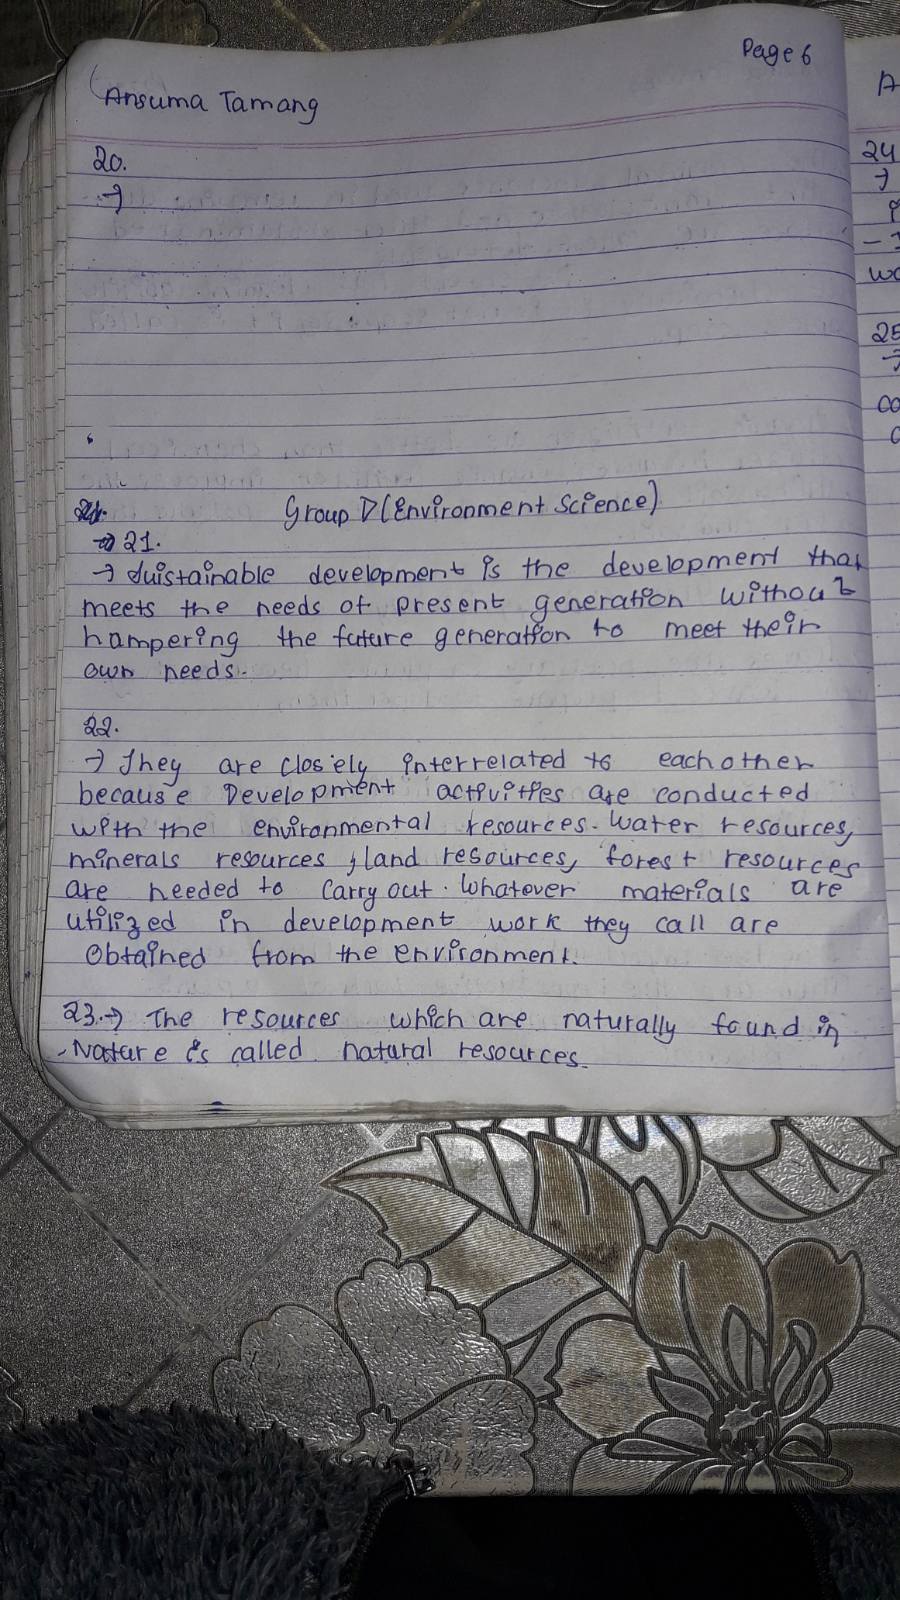 Page 6
Ansuma Tamang
20.
→
Group D (Environment Science)
→ 21.
→ Suistainable development is the development that
meets the needs of present generation without
hampering the future generation to meet their
own needs.
22.
→ They are closely interrelated to each other
because Development activities are conducted
with the environmental resources. Water resources,
minerals resources, land resources, forest resources
are needed to carry out. Whatever materials are
utilized in development work they call are
Obtained from the environment.
23.→ The resources which are naturally found in
Nature is called natural resources.
A
24
→
-
25